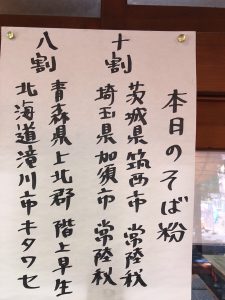 本日のそば粉
十割
茨城県筑西市 常陸秋
埼玉県加須市 常陸秋
八割
青森県上北郡 階上早生
北海道滝川市 キタワセ